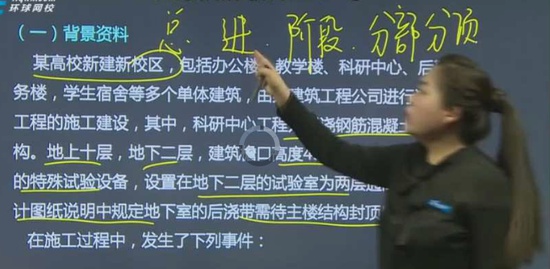 环球网校
总 进 阶段 分部分项
（一）背景资料
某高校新建新校区，包括办公楼 教学楼、科研中心、后
务楼，学生宿舍等多个单体建筑，由 建筑工程公司进行
工程的施工建设，其中，科研中心工程 浇钢筋混凝土
构。地上十层，地下二层，建筑 口高度4
的特殊试验设备，设置在地下二层的试验室为两层
计图纸说明中规定地下室的后浇带需待主楼结构封顶
在施工过程中，发生了下列事件：